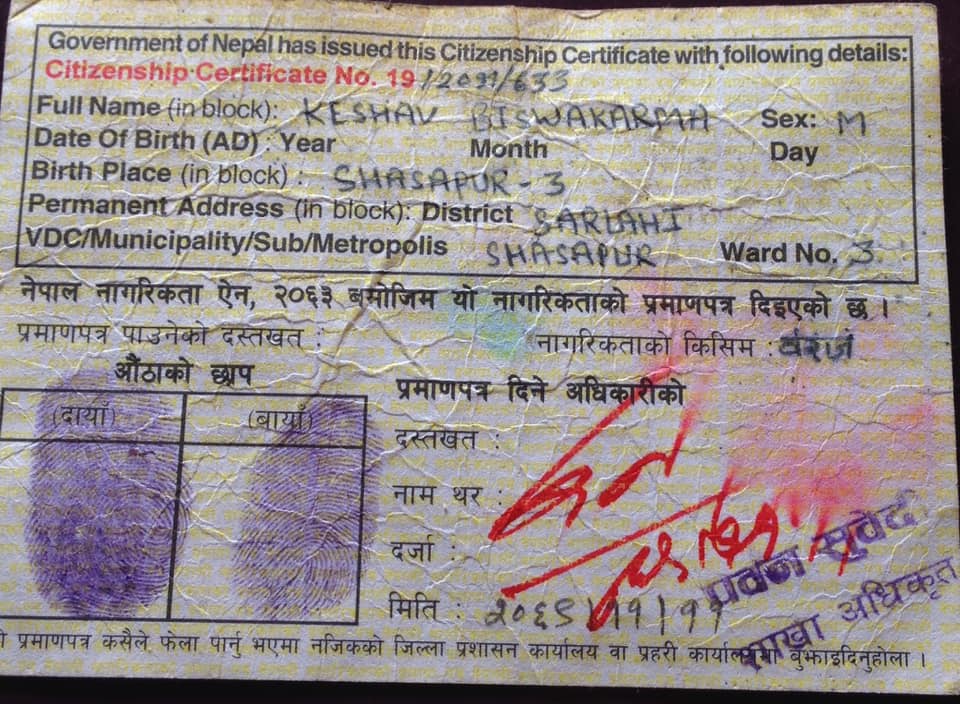 Government of Nepal has issued this Citizenship Certificate with following details:
Citizenship Certificate No. 19/2031/633
Full Name (in block): KESHAV BISWAKARMA Sex: M
Date Of Birth (AD) : Year Month Day
Birth Place (in block) : SHASAPUR - 3
Permanent Address (in block): District SARLAHI
VDC/Municipality/Sub/Metropolis SHASAPUR Ward No. 3
नेपाल नागरिकता ऐन, २०६३ बमोजिम यो नागरिकताको प्रमाणपत्र दिइएको छ ।
प्रमाणपत्र पाउनेको दस्तखत :
नागरिकताको किसिम : वंशज
औंठाको छाप
(दायाँ) (बायाँ)
प्रमाणपत्र दिने अधिकारीको
दस्तखत :
नाम थर :
दर्जा :
मिति :
शाखा अधिकृत
प्रमाणपत्र कसैले फेला पार्नु भएमा नजिकको जिल्ला प्रशासन कार्यालय वा प्रहरी कार्यालयमा बुझाइदिनुहोला ।